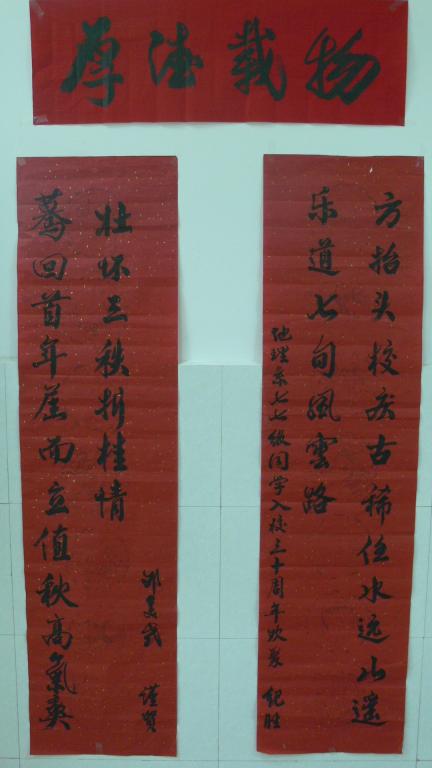 厚德載物
方抬头校庆古稀任水远山遥
乐道七旬風雲路
地理系七七级同学入校三十周年欢聚 纪胜
蓦回首年届而立值秋高氣爽
壮怀三秩折桂情
邓美成 谨贺